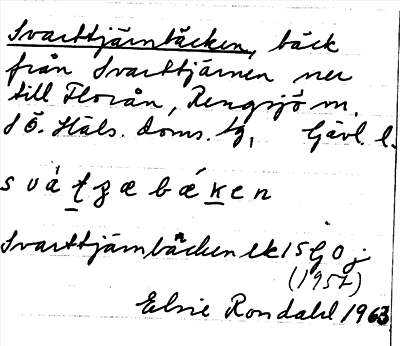 Svarttjärnbäcken, bäck
från Svarttjärnen ner
till Florån, Rengsjö sn.
S Ö. Häls. doms. tg, Gävl. l.
s v á t ʒ æ b ǽ k e n
Svarttjärnbäcken ek 15 G 0 j
(1957)
Elsie Rondahl 1963